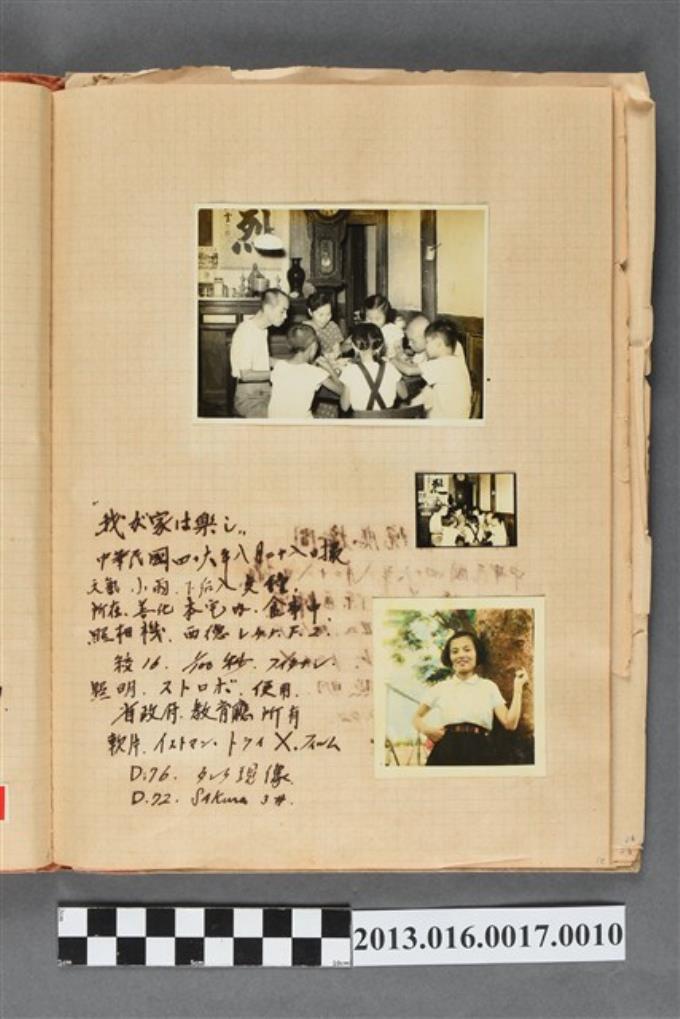 烈
"我が家は樂し"
中華民國四・六年八月二十八日攝
天氣 小雨. 下午八
所在. 善化 本宅内. 食事中
照相機. 西德
絞16. 1/100 秒.
照明. ストロボ. 使用.
省政府. 教育廳 所有
軟片. イストマン・トライX.フィルム
D.76. タンク現像
D.72. Sakura 3#.
2013.016.0017.0010